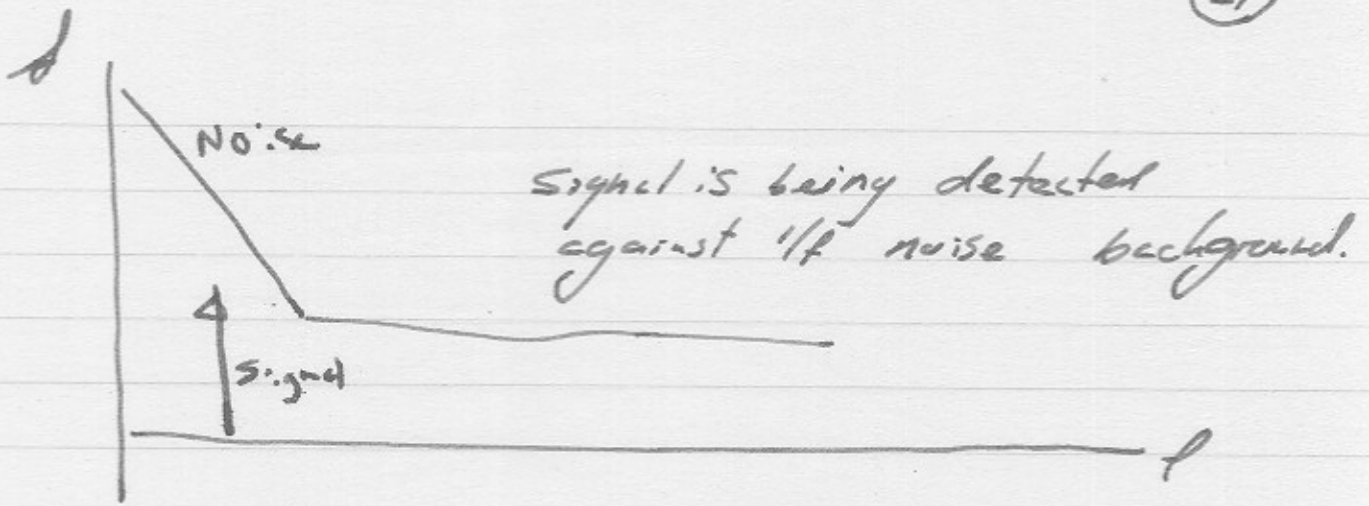 Noise
Signal is being detected
against 1/f noise background.
Signal
f